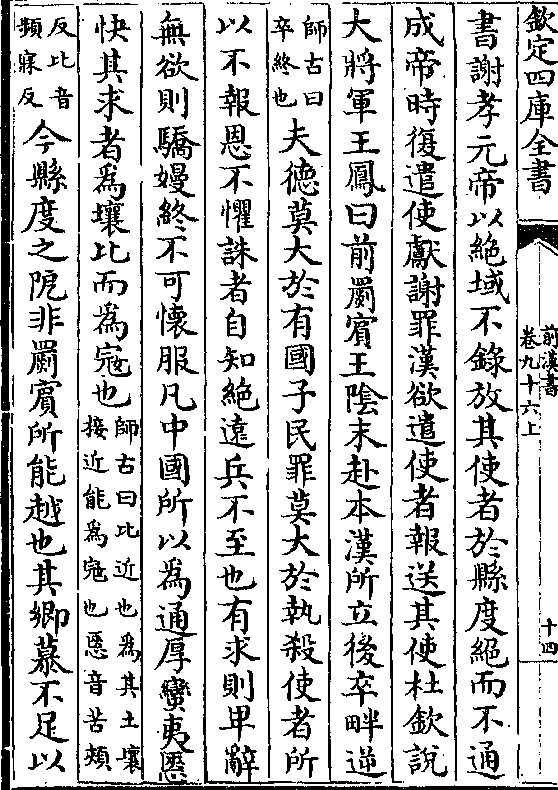 欽定四庫全書
前漢書
卷九十六上
十四
書謝孝元帝以絶域不錄放其使者於縣度絶而不通
成帝時復遣使獻謝罪漢欲遣使者報送其使杜欽說
大將軍王鳳曰前罽賓王隂末赴本漢所立後卒畔逆
師古曰
卒終也
夫德莫大於有國子民罪莫大於執殺使者所
以不報恩不懼誅者自知絶遠兵不至也有求則卑辭
無欲則驕嫚終不可懷服凡中國所以為通厚蠻夷㥦
快其求者為壤比而為宼也
師古曰比近也為其土壤
接近能為宼也㥦音苦頰
反比音
頻寐反
今縣度之阨非罽賓所能越也其鄉慕不足以